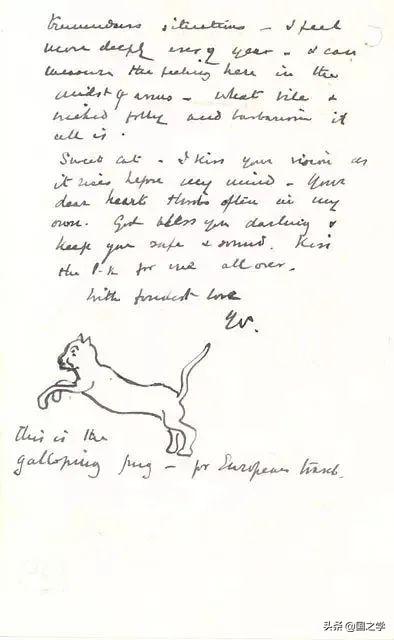 tremendous situations – I feel
more deeply every year – & can
measure the feeling here in the
midst of arms – what vile &
wicked folly and barbarism it
all is.
Sweet cat – I kiss your vision as
it rises before my mind – Your
dear heart throbs often in my
own. God bless you darling &
keep you safe & sound. Kiss
the P.K. for me all over.
With fondest love
W.
This is the
galloping pug – for European travel.
头条 @国之学